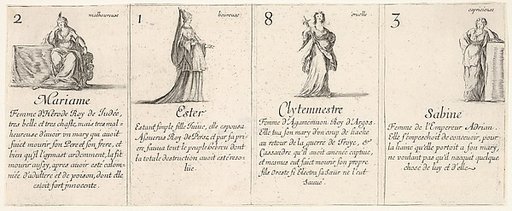 2 malheureuse
Mariame
Femme d'Hérode Roy de Iudée,
tres belle et tres chaste, mais tres mal-
heureuse d'avoir un mary qui avoit
faict mourir son Pere et son frere, et
bien qu'il l'aymast ardemment, la fit
mourir aussy, apres avoir esté calom-
niée d'adultere et de poison, dont elle
estoit fort innocente.
1 heureuse
Ester
Estant simple fille Iuive, elle espousa
Assuerus Roy de Perse, et par sa pri-
ere, sauva tout le peuple hebreu dont
la totale destruction avoit esté reso-
lüe.
8 cruelle
Clytemnestre
Femme d'Agamemnon Roy d'Argos.
Elle tua son mary d'un coup de hache
au retour de la guerre de Troye, et
Cassandre qu'il avoit amenée captive,
et mesmes eut faict mourir son propre
fils Oreste si Electra sa sœur ne l'eut
sauvé.
3 capricieuse
Sabine
Femme de l'Empereur Adrian.
Elle s'empeschoit de concevoir, pour
la haine qu'elle portoit a son mary,
ne voulant pas qu'il nasquit quelque
chose de luy et d'elle.